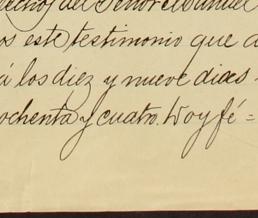 del Señor
os este testimonio que a
á los diez y nueve dias
ochenta y cuatro. Doy fé=